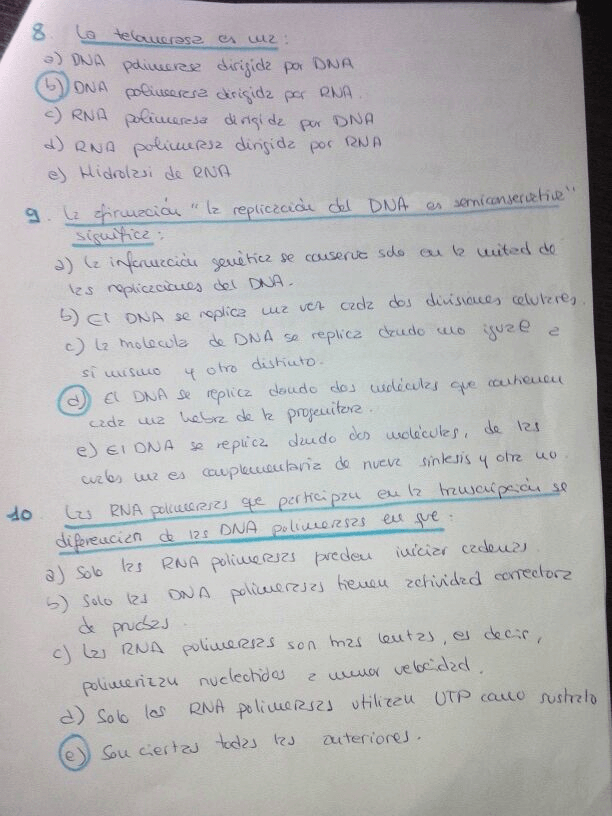 8. La telomerasa es una:
a) DNA polimerasa dirigida por DNA
b) DNA polimerasa dirigida por RNA.
c) RNA polimerasa dirigida por DNA
d) RNA polimerasa dirigida por RNA
e) Hidrolasa de RNA
9. La afirmación "la replicación del DNA es semiconservativa"
significa:
a) La información genética se conserva solo en la mitad de
las replicaciones del DNA.
b) El DNA se replica una vez cada dos divisiones celulares.
c) La molecula de DNA se replica dando uno igual a
sí mismo y otro distinto.
d) El DNA se replica dando dos moléculas que contienen
cada una hebra de la progenitora.
e) El DNA se replica dando dos moléculas, de las
cuales una es complementaria de nueva síntesis y otra no.
10 Las RNA polimerasas que participan en la transcripción se
diferencian de las DNA polimerasas en que:
a) Solo las RNA polimerasas pueden iniciar cadenas.
b) Solo las DNA polimerasas tienen actividad correctora
de pruebas.
c) Las RNA polimerasas son mas lentas, es decir,
polimerizan nucleotidos a menor velocidad.
d) Solo las RNA polimerasas utilizan UTP como sustrato
e) Son ciertas todas las anteriores.